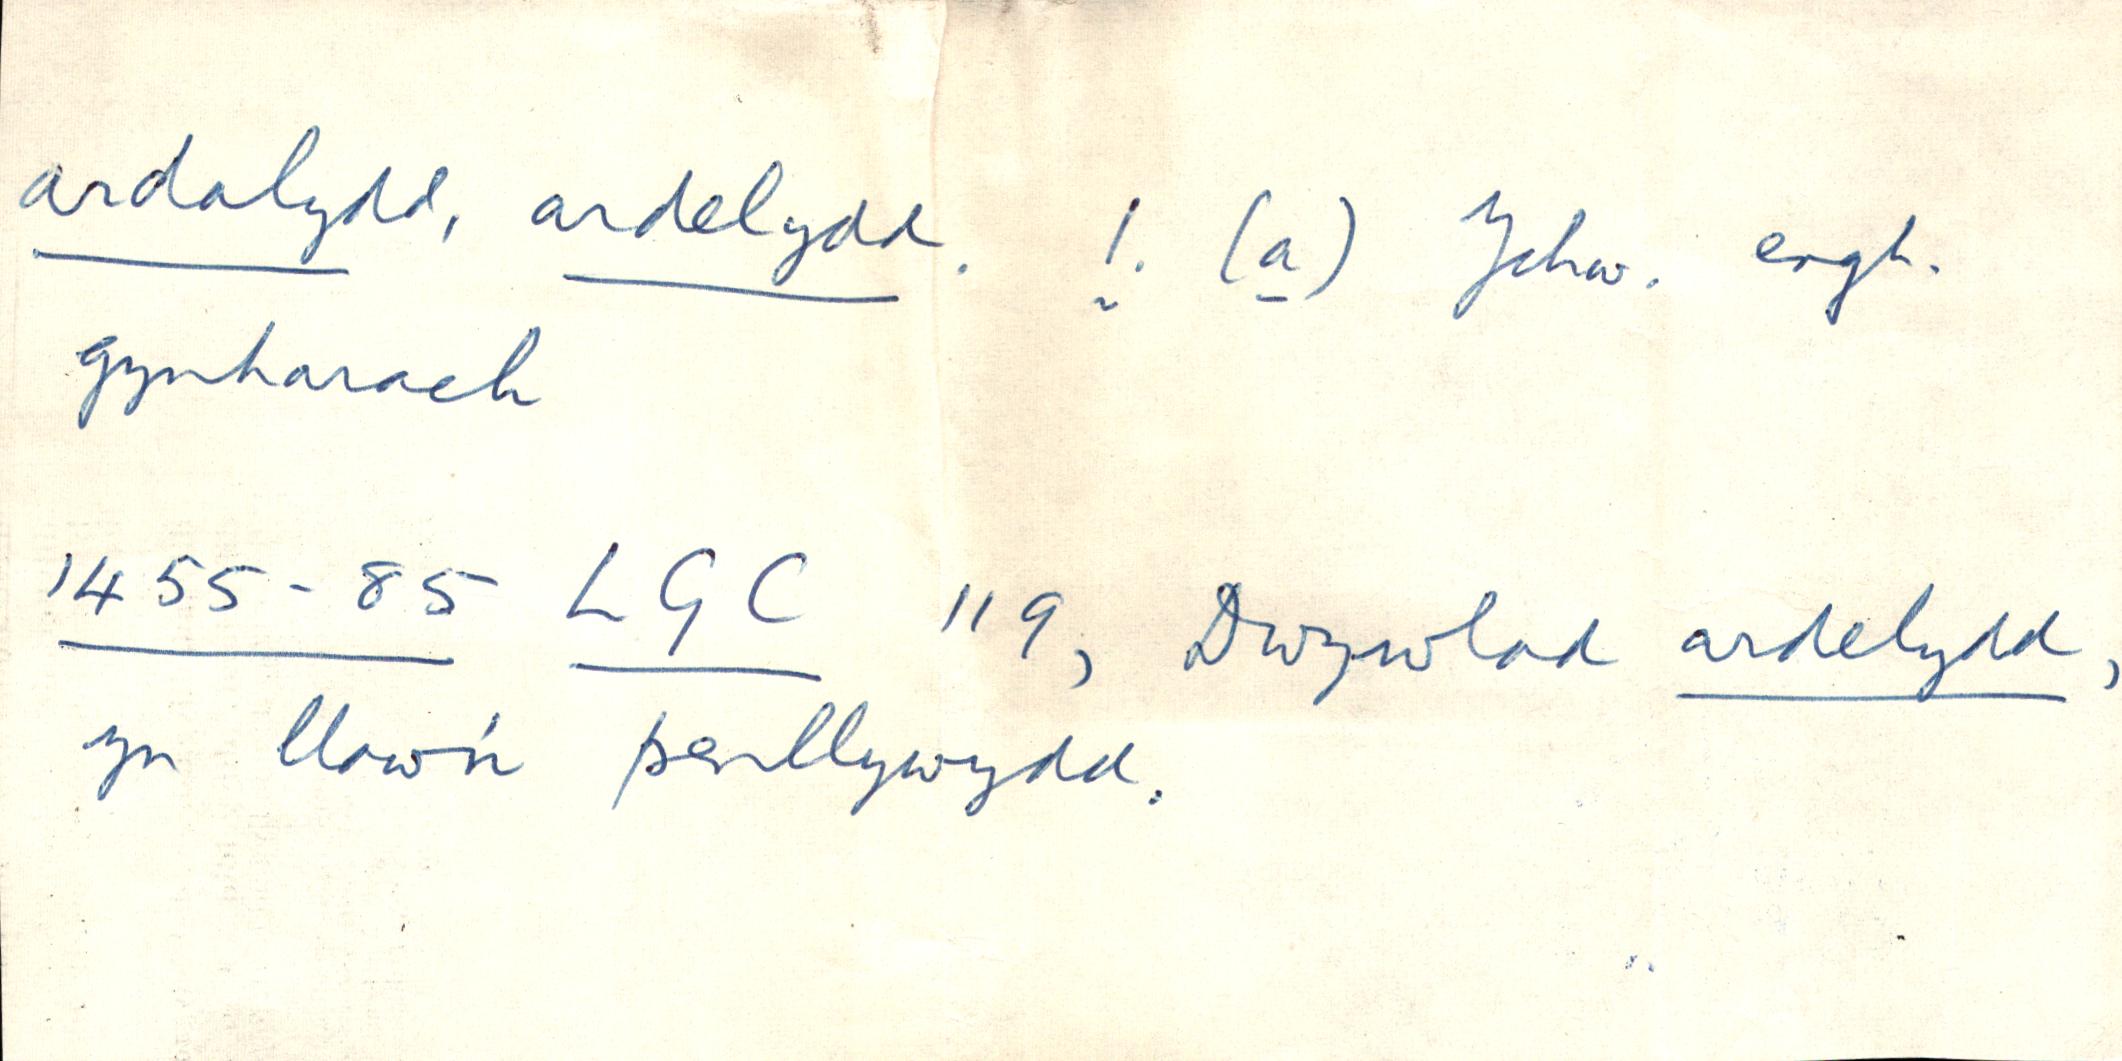 ardalydd, ardelydd. 1. (a) Ychw. engh.
gynharach
1455-85 LGC 119, Dwywlad ardelydd,
yn llawn penllywydd.